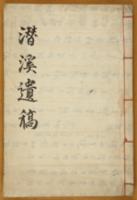 潛溪遺稿